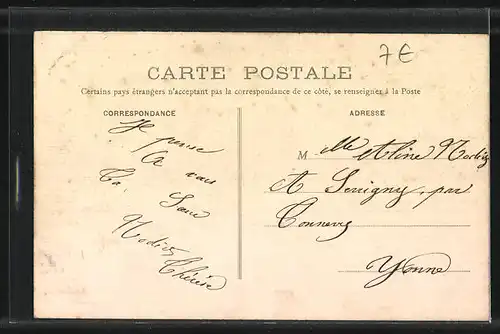 7€
CARTE POSTALE
Certains pays étrangers n'acceptant pas la correspondance de ce côté, se renseigner à la Poste
CORRESPONDANCE
Je pense
A vous
Ta Sœur
Thérèse
ADRESSE
M elle Aline
A Serrigny, par
Tonnerre
Yonne